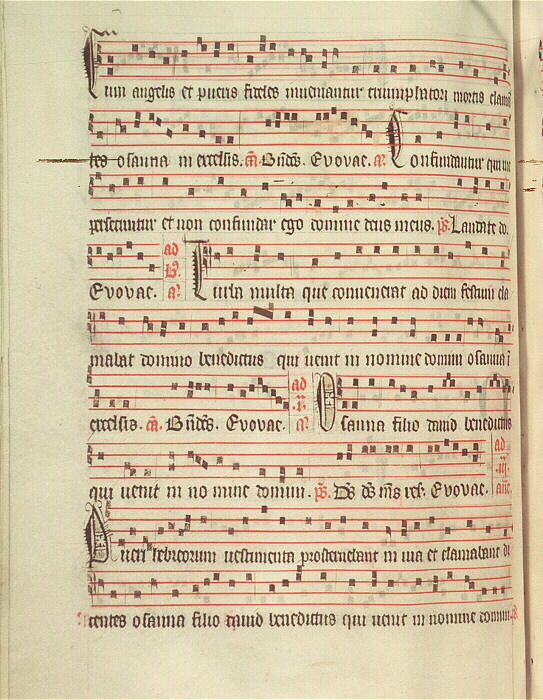 Cum angelis et pueris fideles inueniantur triumphatori mortis claman
tes osanna in excelsis. Bn̄dc̄s. Evovae. a͞. Confundantur qui me
persecuntur et non confundar ego domine deus meus. ps̄. Laudate do.
Evovae. ad B̄. a͞. Turba multa que conuenerat ad diem festum cla
mabat domino benedictus qui uenit in nomine domini osanna ī
excelsis. Bn̄dc̄s. Evovae. ad a͞. Osanna filio dauid benedictus
qui uenit in nomine domini. ps̄. Dc̄ dc̄ ms̄ res. Evovae. ad
Pueri hebreorum uestimenta prosternebant in uia et clamabant di
centes osanna filio dauid benedictus qui uenit in nomine domini.